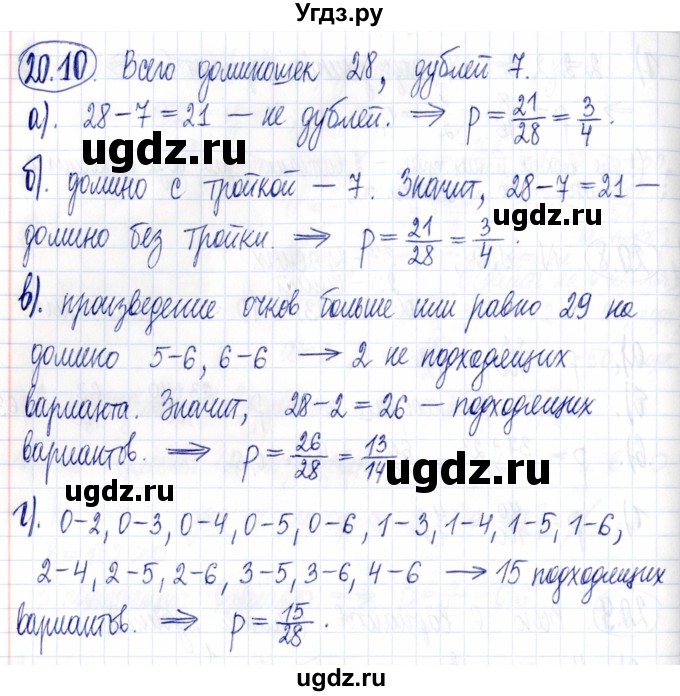 Угдз.ру
20.10. Всего доминошек 28, дублей 7.
а). 28 – 7 = 21 — не дублей. ⟹ p = 21/28 = 3/4.
ugdz.ru
ugdz.ru
б). домино с тройкой – 7. Значит, 28 – 7 = 21 —
ugdz.ru
домино без тройки. ⟹ p = 21/28 = 3/4.
в). произведение очков больше или равно 29 на
домино 5-6, 6-6 ⟶ 2 не подходящих
ugdz.ru
варианта. Значит, 28 – 2 = 26 — подходящих
ugdz.ru
вариантов. ⟹ p = 26/28 = 13/14.
ugdz.ru
г). 0-2, 0-3, 0-4, 0-5, 0-6, 1-3, 1-4, 1-5, 1-6,
2-4, 2-5, 2-6, 3-5, 3-6, 4-6 ⟶ 15 подходящих
ugdz.ru
ugdz.ru
вариантов. ⟹ p = 15/28.
ugdz.ru